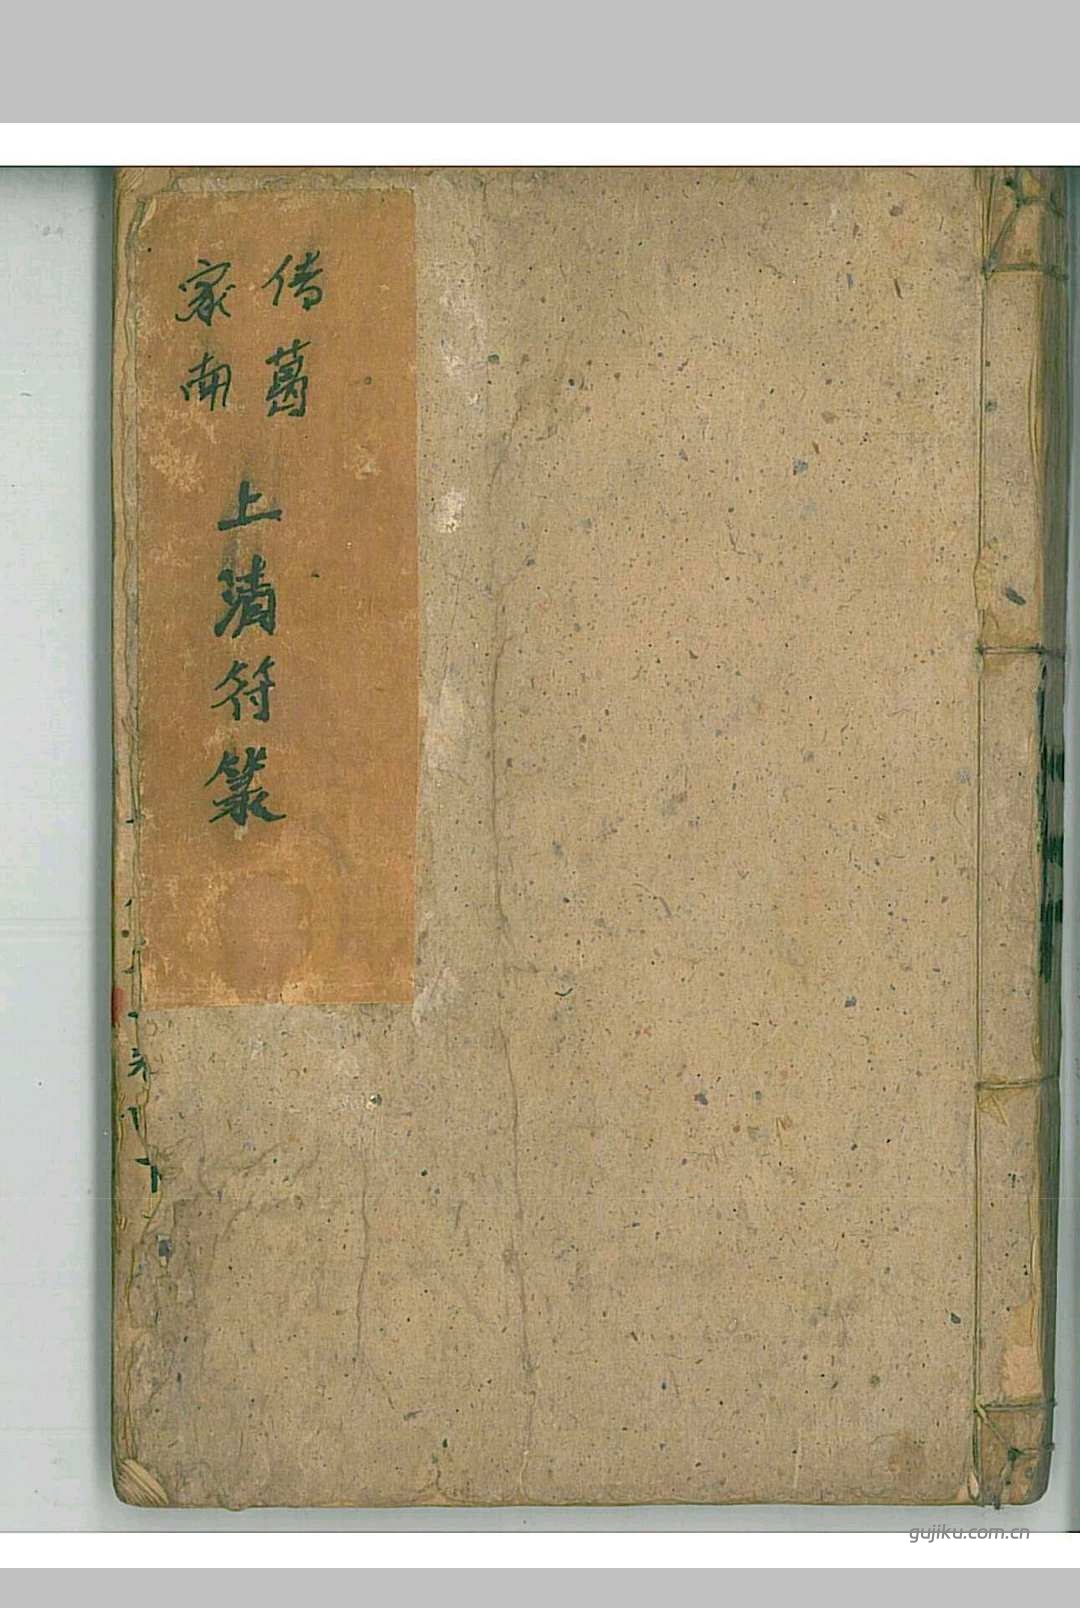 传葛
家南
上清符箓
gujiku.com.cn